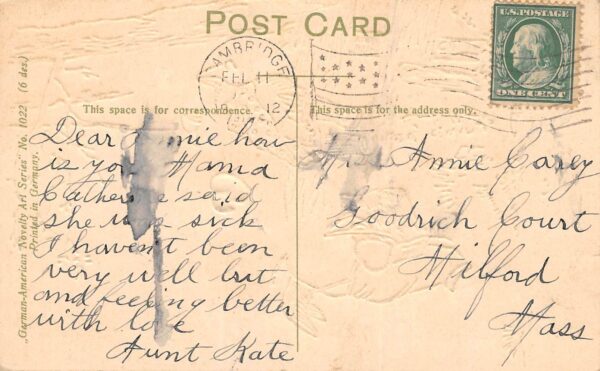 POST CARD
U.S. POSTAGE
ONE CENT
CAMBRIDGE
FEB 11
12
This space is for correspondence.
This space is for the address only.
„German-American Novelty Art Series" No. 1022 (6 des.)
Printed in Germany.
Dear Annie how
is your Mama
Catherine said
she was sick
I haven't been
very well but
and feeling better
with love
Aunt Kate
Miss Annie Carey
Goodrich Court
Milford
Mass